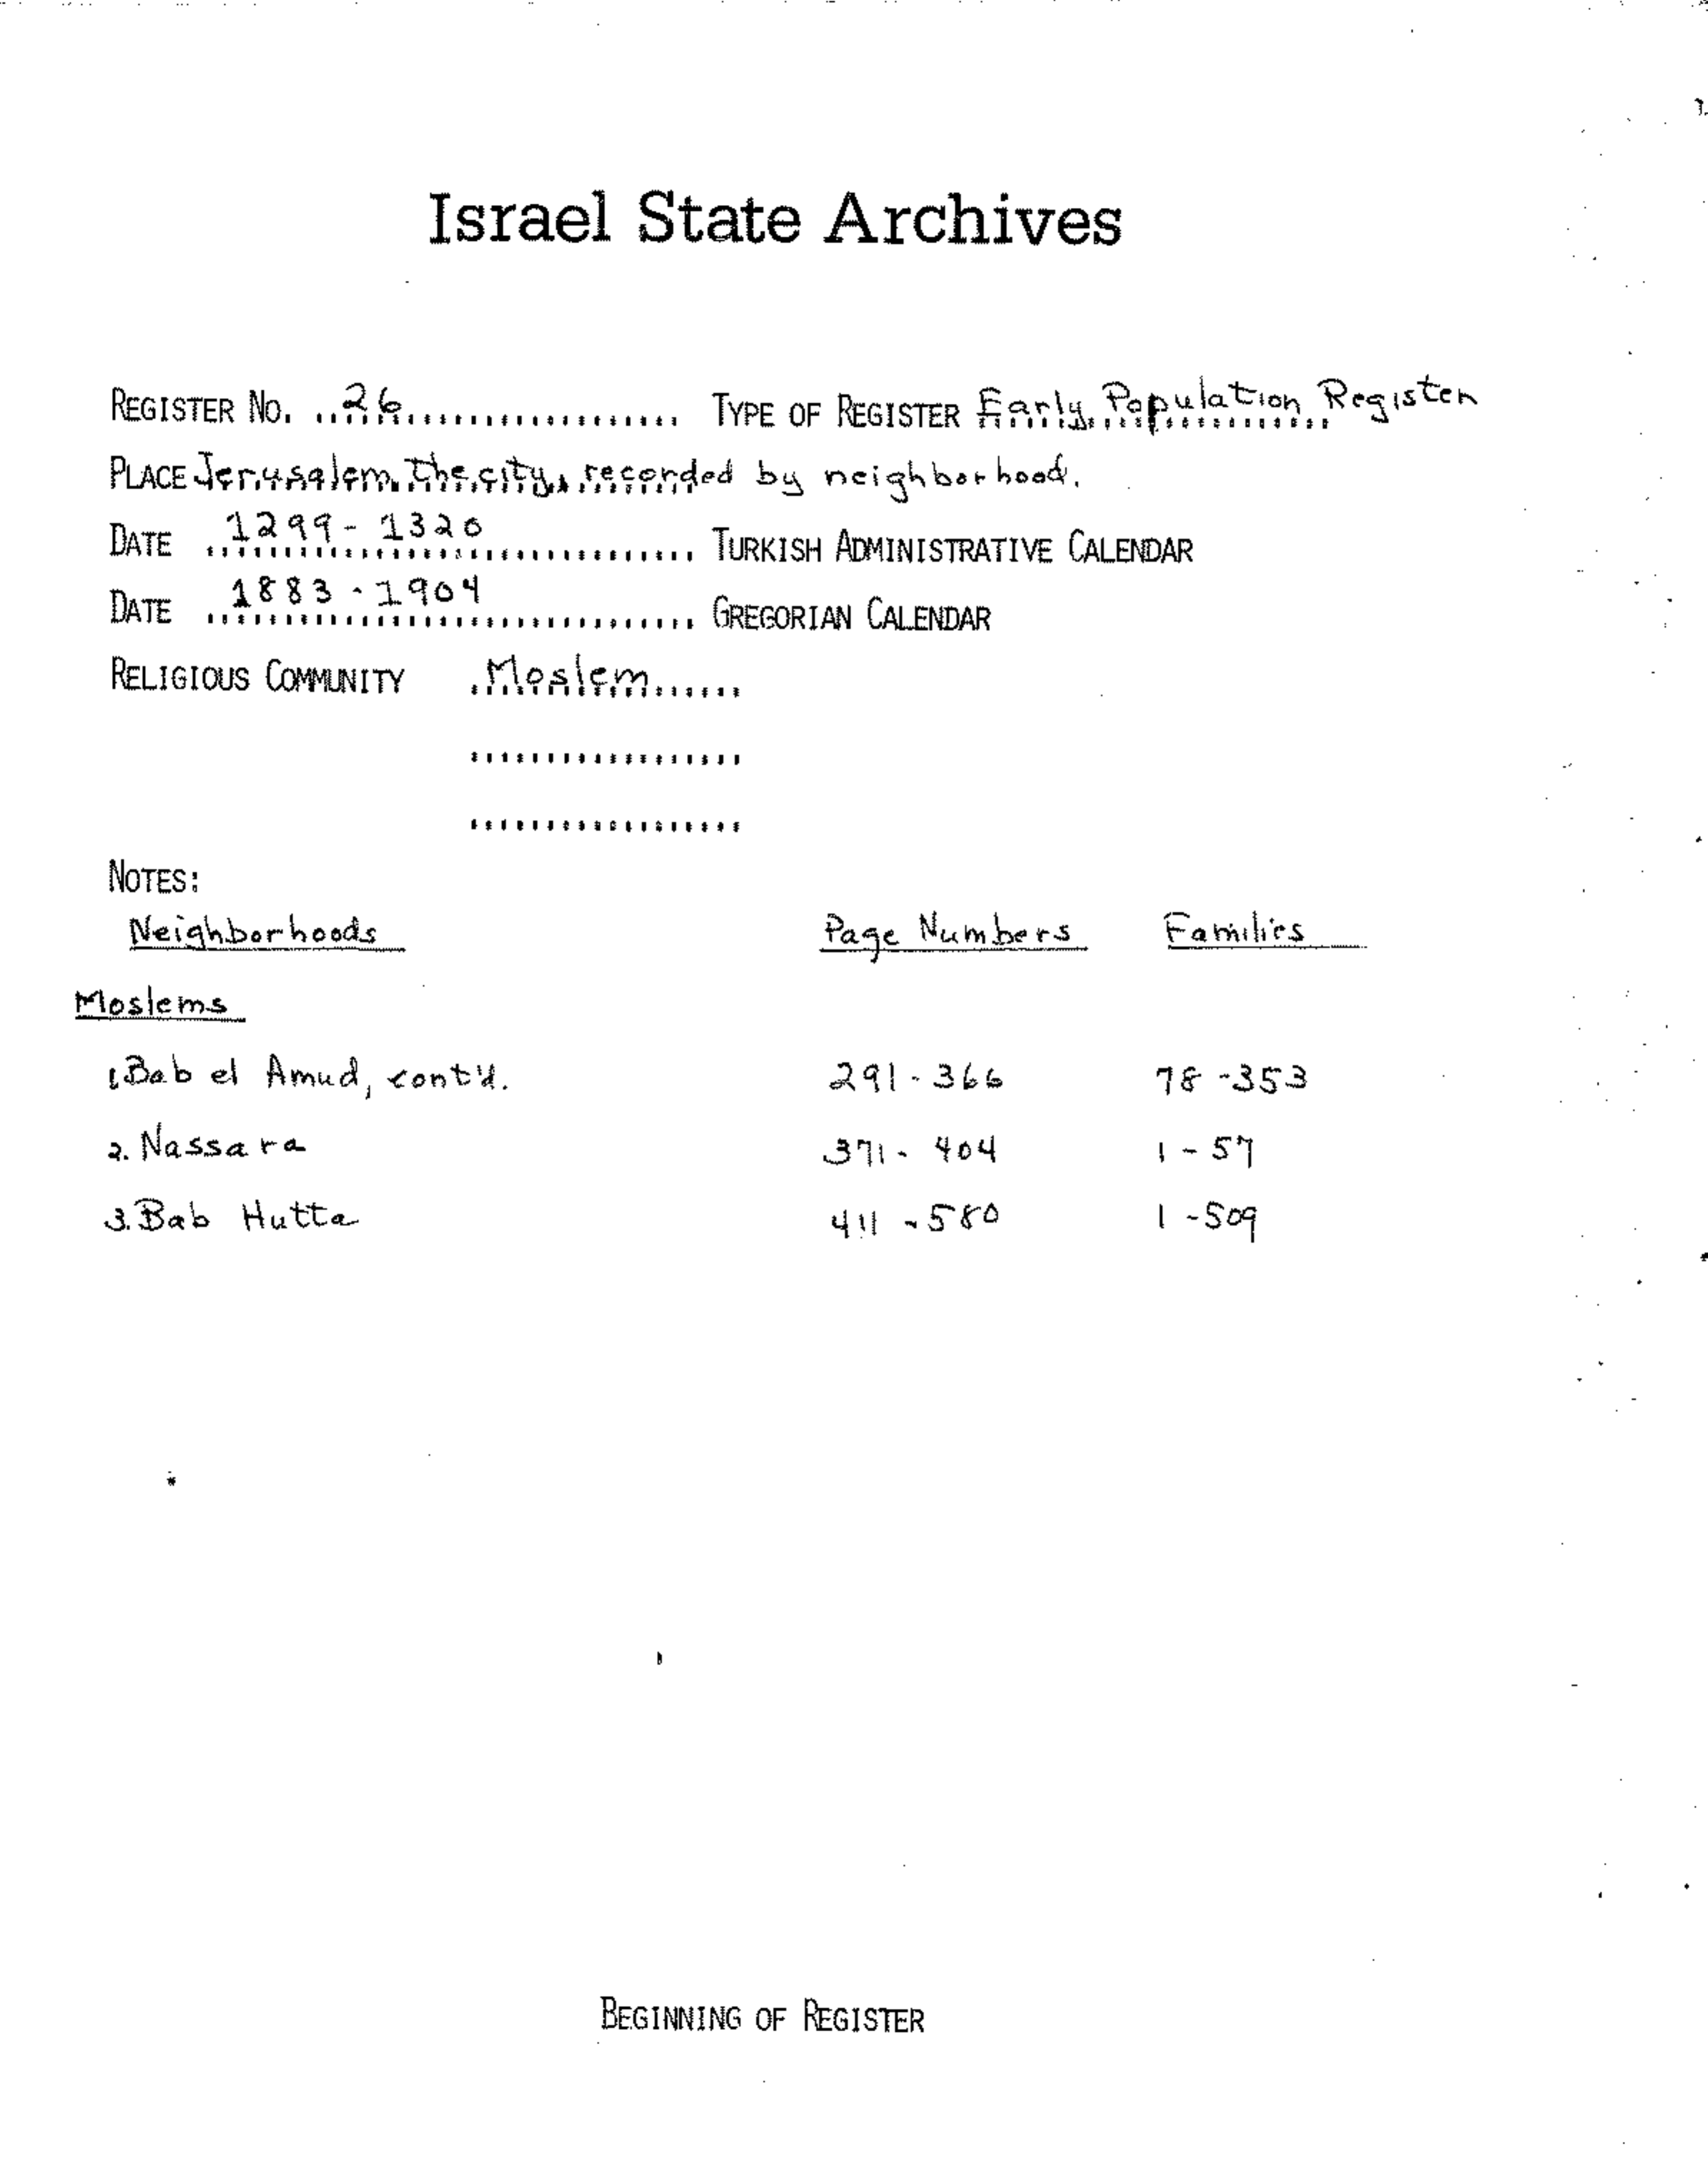 Israel State Archives
REGISTER NO. 26 TYPE OF REGISTER Early Population Register
PLACE Jerusalem. The city, recorded by neighborhood.
DATE 1299 - 1320 TURKISH ADMINISTRATIVE CALENDAR
DATE 1883 - 1904 GREGORIAN CALENDAR
RELIGIOUS COMMUNITY Moslem
NOTES:
Neighborhoods Page Numbers Families
Moslems
1. Bab el Amud, cont'd. 291 - 366 78 - 353
2. Nassara 371 - 404 1 - 57
3. Bab Hutta 411 - 580 1 - 509
BEGINNING OF REGISTER